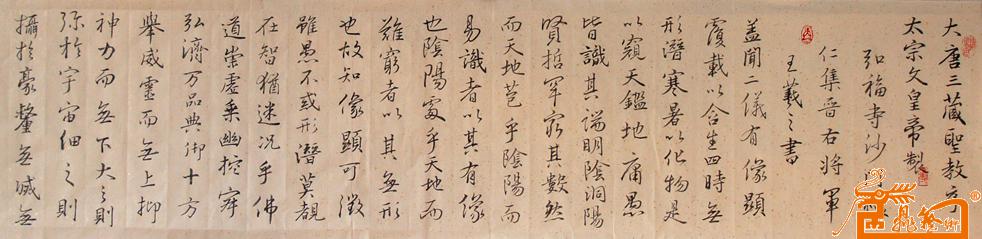 大唐三藏聖教序
太宗文皇帝製
弘福寺沙
仁集晋右將軍
王羲之書
蓋聞二儀有像顯
覆載以含生四時無
形潛寒暑以化物是
以窺天鑑地庸愚
皆識其端明陰洞陽
賢哲罕窮其數然
而天地苞乎陰陽而
易識者以其有像
也陰陽處乎天地而
難窮者以其無形
也故知像顯可徵
雖愚不或形潛莫覩
在智猶迷况乎佛
道崇虛乘幽控寂
弘濟万品典御十方
舉威靈而無上抑
神力而無下大之則
弥於宇宙細之則
攝於豪釐無滅無